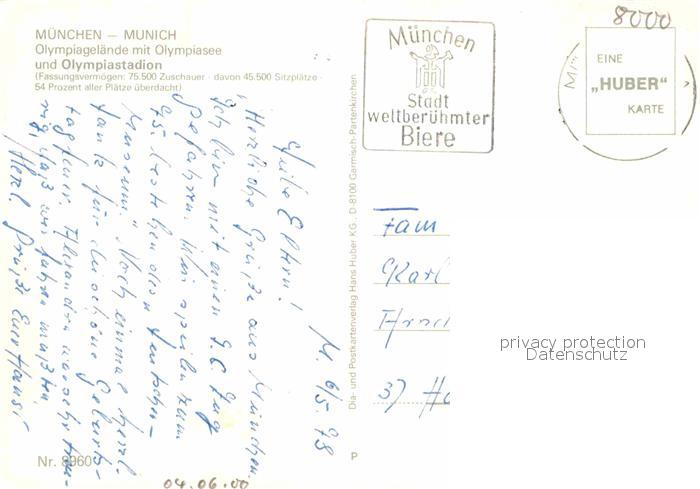 MÜNCHEN — MUNICH
Olympiagelände mit Olympiasee
und Olympiastadion
(Fassungsvermögen: 75.500 Zuschauer · davon 45.500 Sitzplätze ·
54 Prozent aller Plätze überdacht)
München
Stadt
weltberühmter
Biere
8000
EINE
„HUBER"
KARTE
M. 6/5. 78
Liebe Eltern!
Herzliche Grüße aus München.
Ich bin mit einem
gefahren. Wir spielen zum
Museum." Noch einmal herzl.
Dank für die schöne Geburts-
tagfeier. Alexandra war sehr
daß wir fahren mußten
Herzl. Grüße Euer Hans
Dia- und Postkartenverlag Hans Huber KG., D-8100 Garmisch-Partenkirchen
Fam
Karl
privacy protection
Datenschutz
Nr. 8960
P
04.06.00